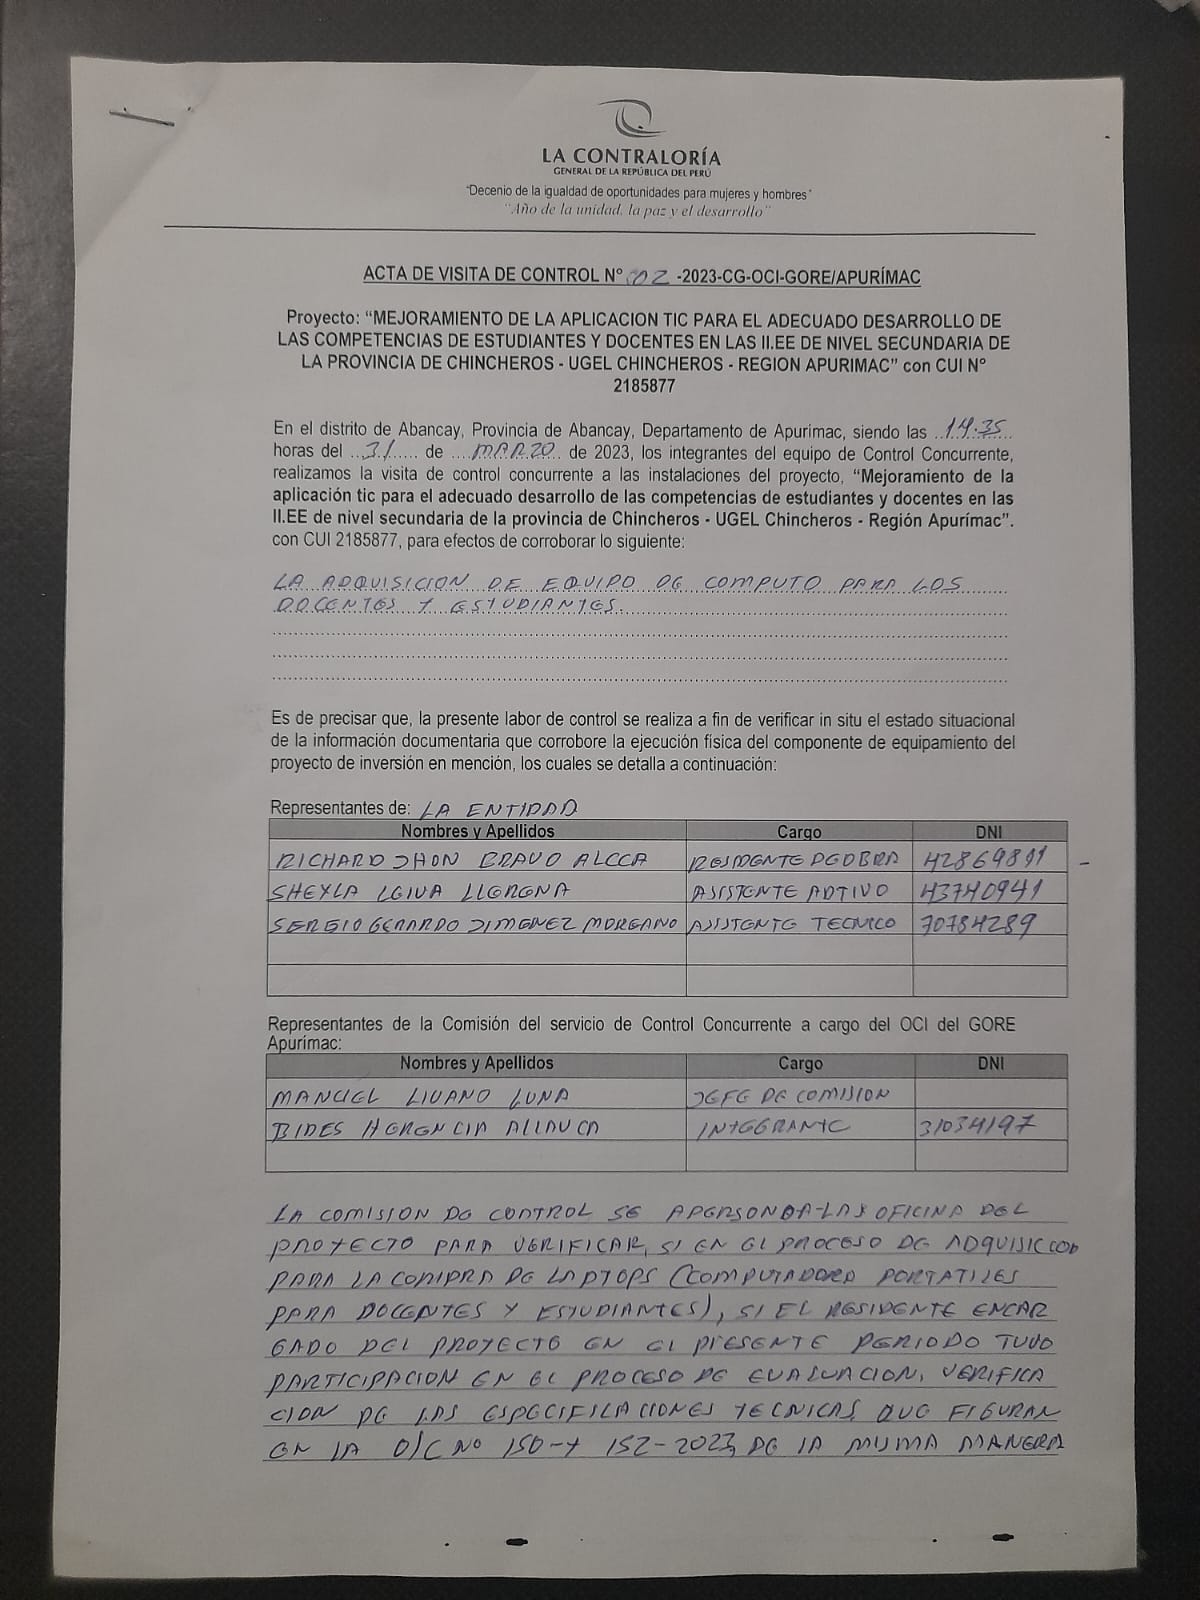 LA CONTRALORÍA
GENERAL DE LA REPÚBLICA DEL PERÚ
"Decenio de la igualdad de oportunidades para mujeres y hombres"
"Año de la unidad, la paz y el desarrollo"
ACTA DE VISITA DE CONTROL N° 002 -2023-CG-OCI-GORE/APURÍMAC
Proyecto: "MEJORAMIENTO DE LA APLICACION TIC PARA EL ADECUADO DESARROLLO DE
LAS COMPETENCIAS DE ESTUDIANTES Y DOCENTES EN LAS II.EE DE NIVEL SECUNDARIA DE
LA PROVINCIA DE CHINCHEROS - UGEL CHINCHEROS - REGION APURIMAC" con CUI N°
2185877
En el distrito de Abancay, Provincia de Abancay, Departamento de Apurimac, siendo las ..14.35..
horas del ...31..... de ....MARZO.. de 2023, los integrantes del equipo de Control Concurrente,
realizamos la visita de control concurrente a las instalaciones del proyecto, "Mejoramiento de la
aplicación tic para el adecuado desarrollo de las competencias de estudiantes y docentes en las
II.EE de nivel secundaria de la provincia de Chincheros - UGEL Chincheros - Región Apurímac".
con CUI 2185877, para efectos de corroborar lo siguiente:
LA ADQUISICION DE EQUIPO DE COMPUTO PARA LOS
DOCENTES Y ESTUDIANTES.
Es de precisar que, la presente labor de control se realiza a fin de verificar in situ el estado situacional
de la información documentaria que corrobore la ejecución física del componente de equipamiento del
proyecto de inversión en mención, los cuales se detalla a continuación:
Representantes de: LA ENTIDAD
Nombres y Apellidos Cargo DNI
RICHARD JHON BRAVO ALCCA RESIDENTE DE OBRA 42869811 -
SHEYLA LEIVA LLERENA ASISTENTE ADTIVO 43740941
SERGIO GERARDO JIMENEZ MOREANO ASISTENTE TECNICO 70784289
Representantes de la Comisión del servicio de Control Concurrente a cargo del OCI del GORE
Apurímac:
Nombres y Apellidos Cargo DNI
MANUEL LIVANO LUNA JEFE DE COMISION
BIDES HERENCIA ALLAUCA INTEGRANTE 31034197
LA COMISION DE CONTROL SE APERSONO A LAS OFICINA DEL
PROYECTO PARA VERIFICAR, SI EN EL PROCESO DE ADQUISICION
PARA LA COMPRA DE LAPTOPS (COMPUTADORA PORTATILES
PARA DOCENTES Y ESTUDIANTES), SI EL RESIDENTE ENCAR
GADO DEL PROYECTO EN EL PRESENTE PERIODO TUVO
PARTICIPACION EN EL PROCESO DE EVALUACION, VERIFICA
CION DE LAS ESPECIFICACIONES TECNICAS QUE FIGURAN
EN LA O/C NO 150-Y 152-2023, DE LA MISMA MANERA